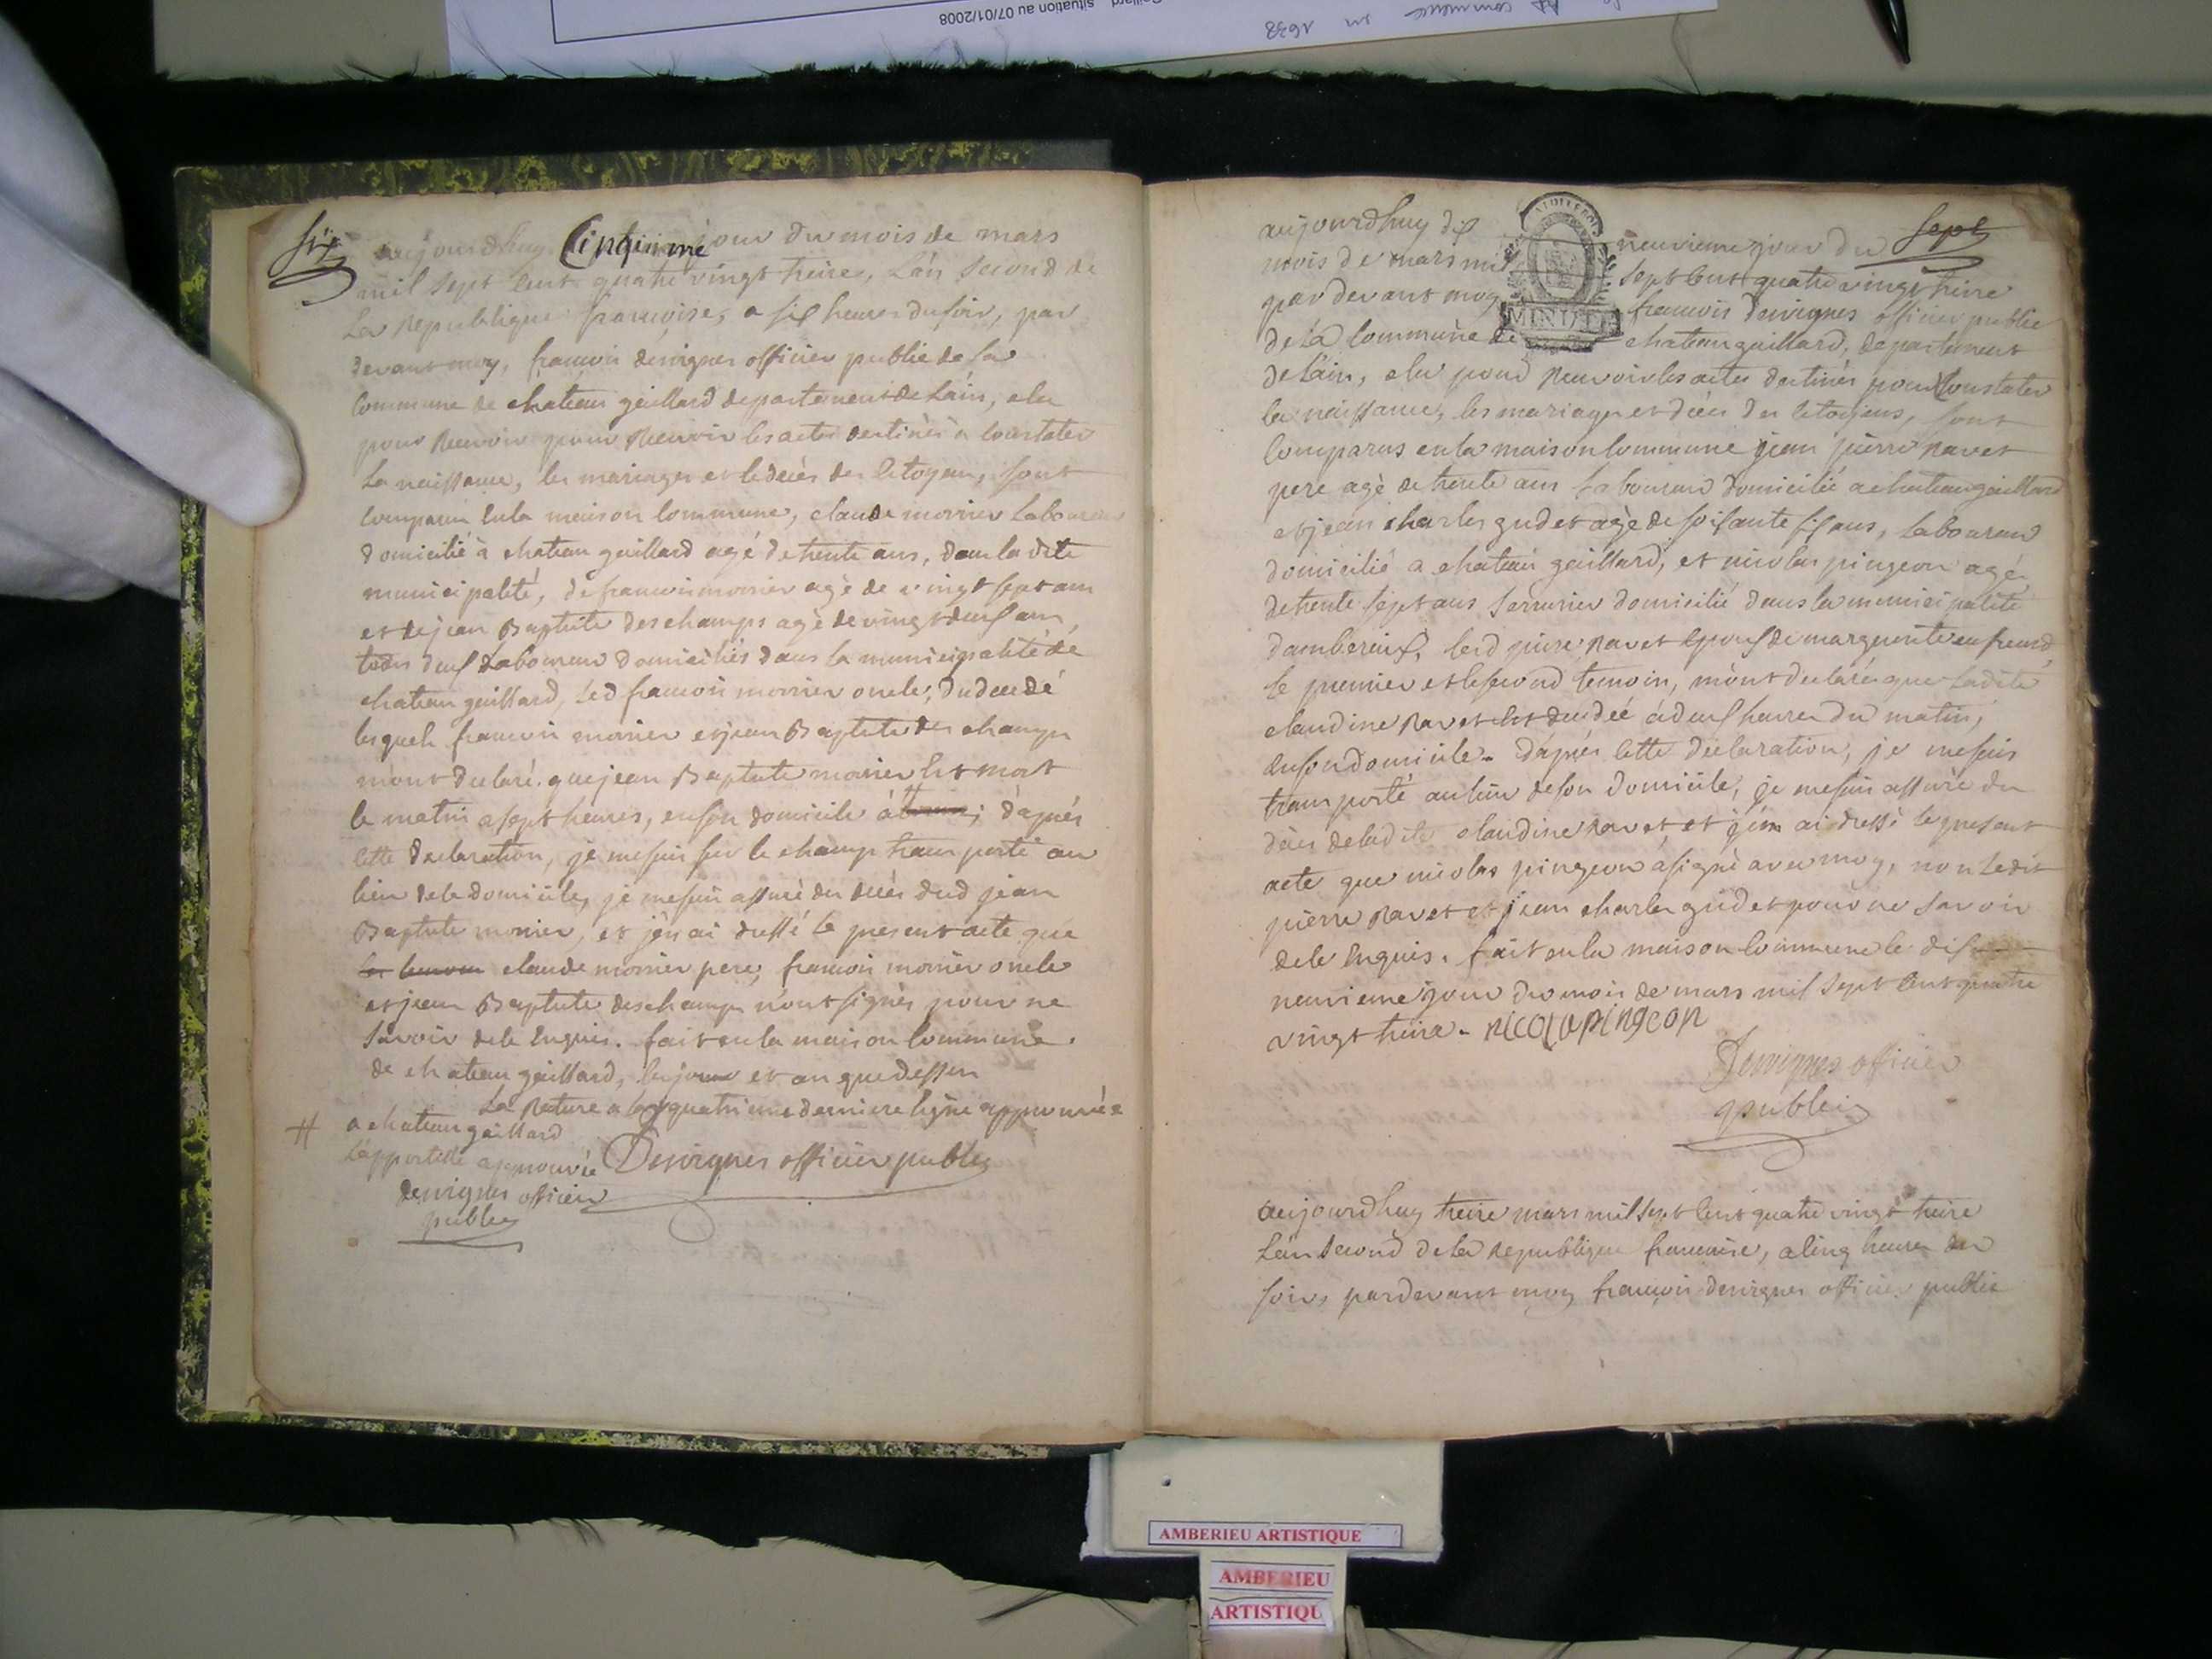 situation au 07/01/2008
commence en 1638
six
aujourdhuy Cinquieme jour du mois de mars
mil sept cent quatre vingt treize, l'an second de
la republique françoise, a six heures du soir, par
devant moy, françois desvignes officier public de la
commune de chateau gaillard departement de l'ain, elu
pour recevoir pour recevoir les actes destinés à constater
la naissance, les mariages et le décès des citoyens, sont
comparus en la maison commune, claude monier laboureur
domicilié à chateau gaillard agé de trente ans, dans la dite
municipalité, de francois monier agé de vingt sept ans
et de jean Baptiste deschamps agé de vingt deux ans,
tous deux laboureurs domiciliés dans la municipalité de
chateau gaillard, led francois monier oncle, du decedé
lesquels francois monier et jean Baptiste des champs
m'ont declaré que jean Baptiste monier est mort
le matin a sept heures, en son domicile à # ; d'après
cette declaration, je me suis sur le champ transporté au
lieu de ce domicile, je me suis assuré du décès dud jean
Baptiste monier, et j'en ai dressé le present acte que
claude monier pere, francois monier oncle
et jean Baptiste deschamps n'ont signés pour ne
savoir de ce enquis. fait en la maison commune
de chateau gaillard, les jour et an que dessus
la rature a la quatrieme derniere ligne approuvée
# a chateau gaillard
l'appostille approuvée Desvignes officier public
desvignes officier
public
sept
aujourdhuy dix neuvieme jour du
mois de mars mil sept cent quatre vingt treize
par devant moy francois desvignes officier public
de la commune de chateau gaillard, departement
de l'ain, elu pour recevoir les actes destinés pour constater
les naissances, les mariages et décès des citoyens, sont
comparus en la maison commune jean pierre ravet
pere agé de trente ans laboureur domicilié a chateau gaillard
et jean charles gudet agé de soixante six ans, laboureur
domicilié a chateau gaillard, et nicolas pingeon agé
de trente sept ans serrurier domicilié dans la municipalité
damberieux, led pierre ravet epoux de marguerite
le premier et le second temoin, m'ont declarés que ladite
claudine ravet est decedée à deux heures du matin,
en son domicile. D'après cette declaration, je me suis
transporté au lieu de son domicile, je me suis assuré du
décès de ladite claudine ravet et j'en ai dressé le present
acte que nicolas pingeon à signé avec moy, non ledit
pierre ravet et jean charles gudet pour ne savoir
de ce enquis. fait en la maison commune le dix
neuvieme jour du mois de mars mil sept cent quatre
vingt treize. nicola pingeon
Desvignes officier
public
MINUTE
aujourdhuy treize mars mil sept cent quatre vingt treize
l'an second de la republique francoise, a cinq heures du
soir, pardevant moy francois desvignes officier public
AMBERIEU ARTISTIQUE
AMBERIEU
ARTISTIQU